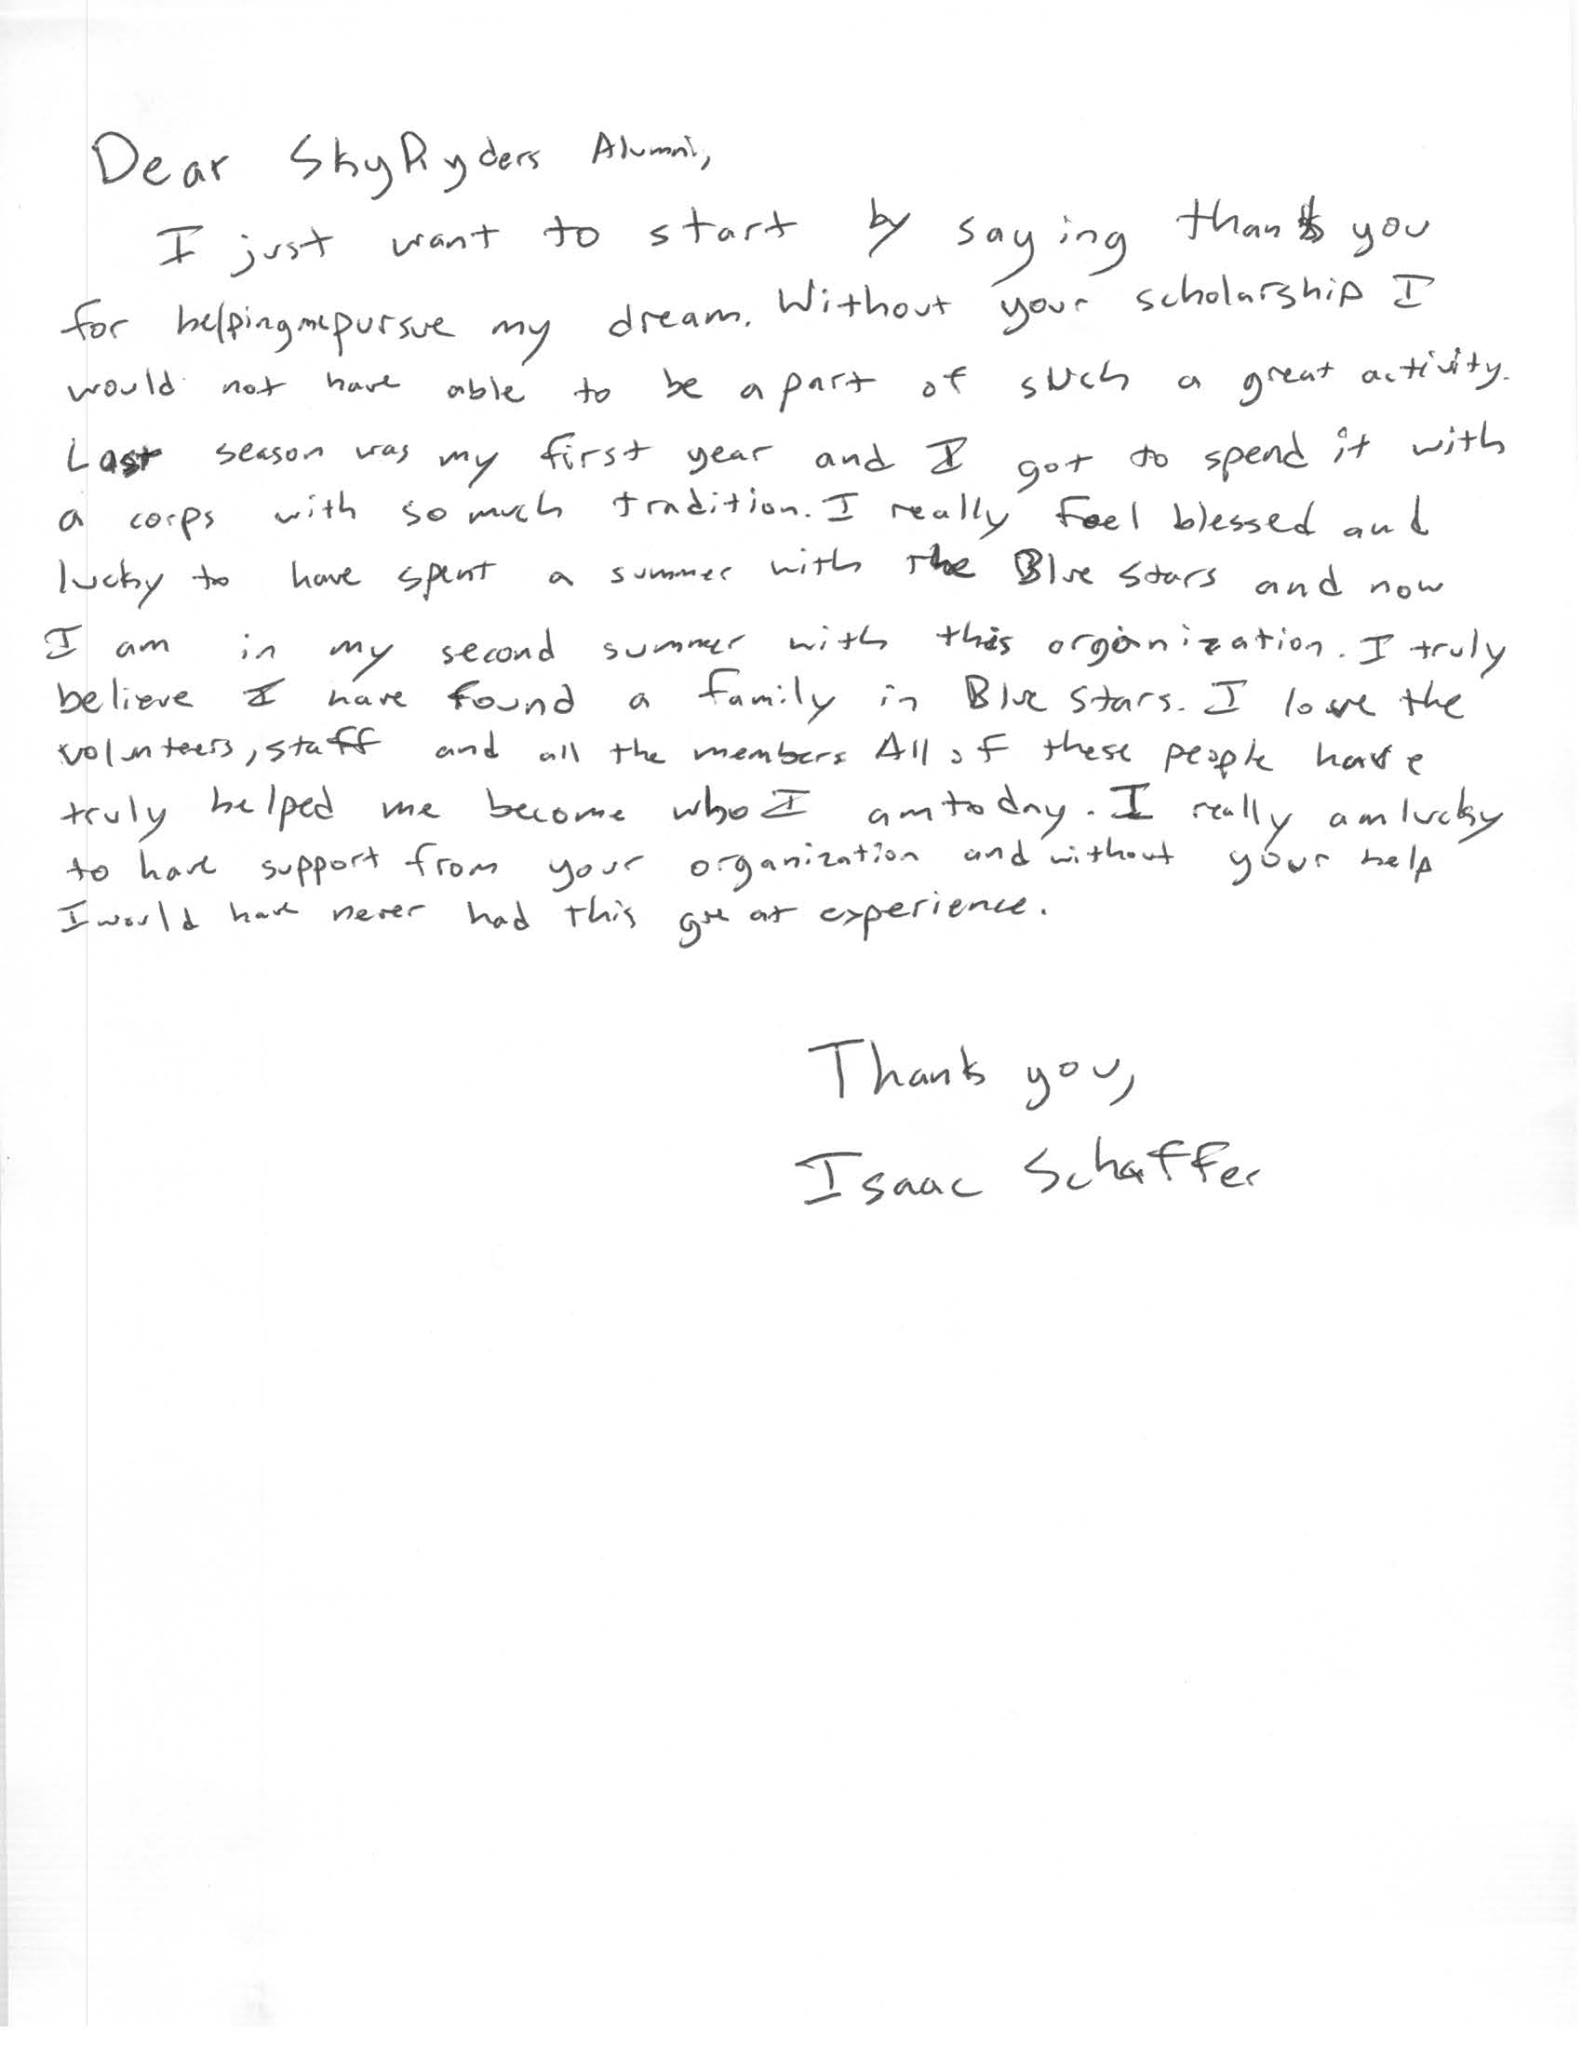 Dear SkyRyders Alumni,
I just want to start by saying thank you
for helping me pursue my dream. Without your scholarship I
would not have able to be a part of such a great activity.
Last season was my first year and I got to spend it with
a corps with so much tradition. I really feel blessed and
lucky to have spent a summer with the Blue Stars and now
I am in my second summer with this organization. I truly
believe I have found a family in Blue Stars. I love the
volunteers, staff and all the members All of these people have
truly helped me become who I am today. I really am lucky
to have support from your organization and without your help
I would have never had this great experience.
Thank you,
Isaac Schaffer